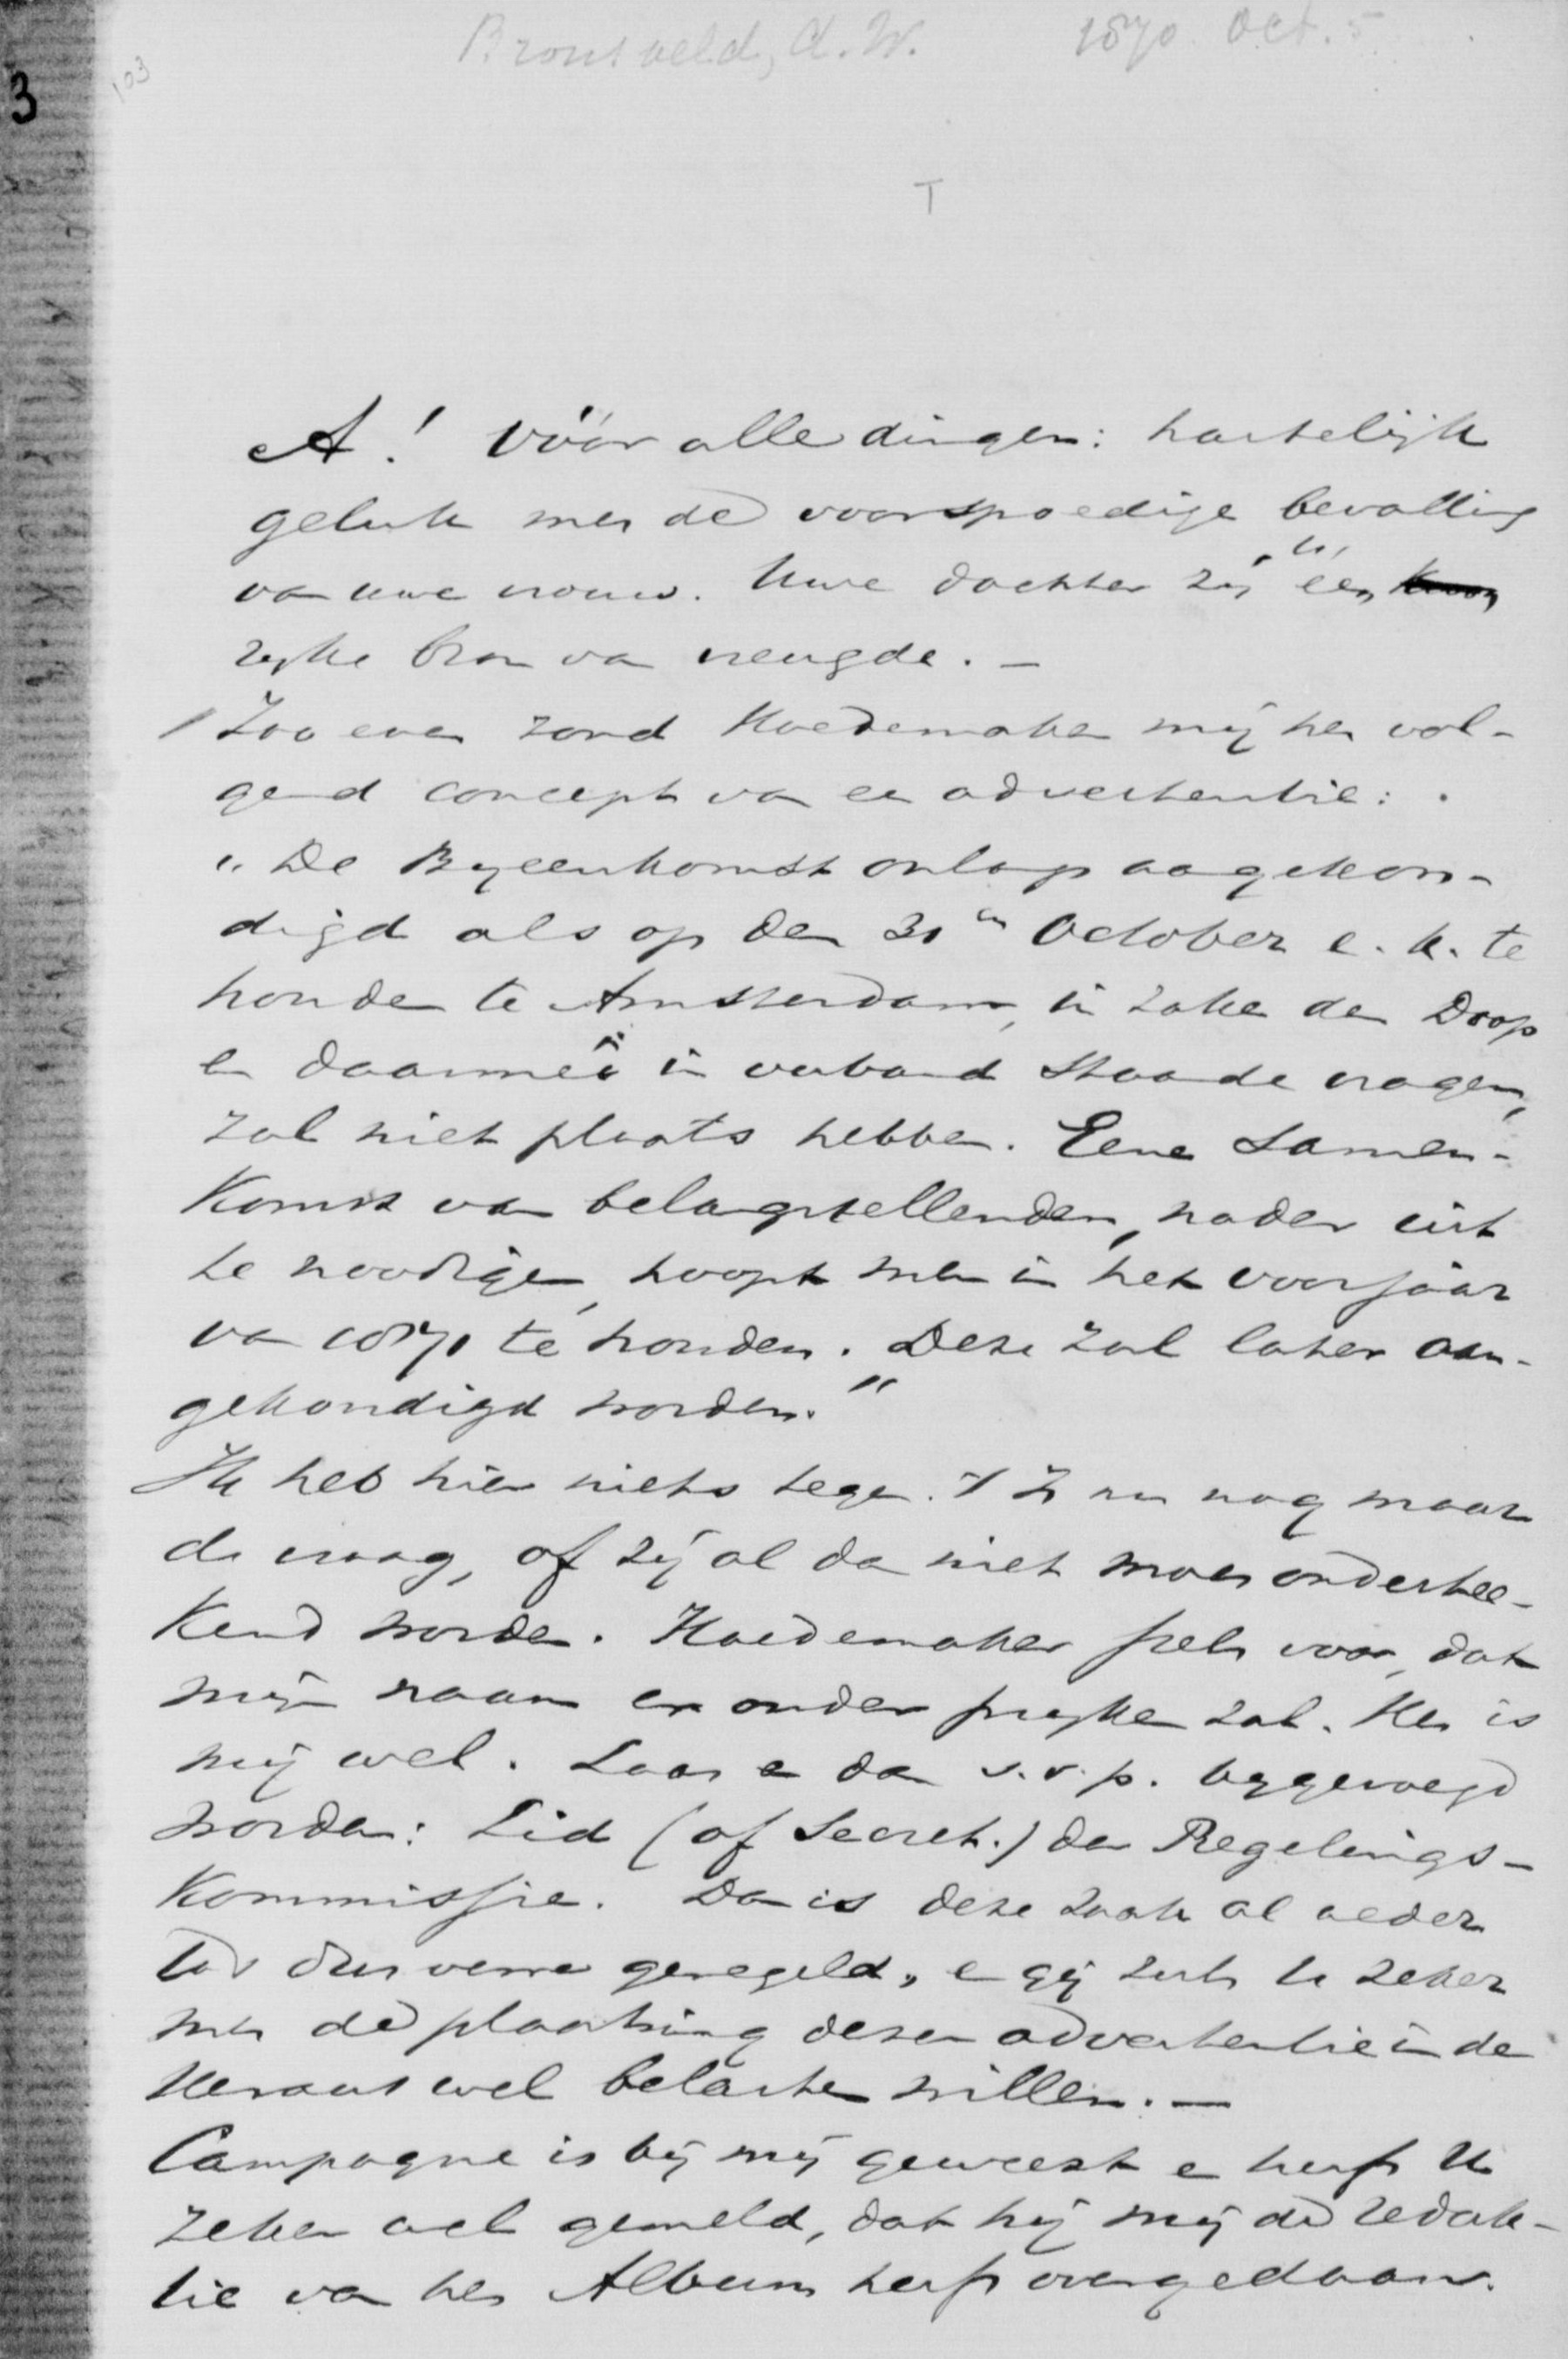 Bronsveld, A. W. 1870 Oct. 5
103
3
T
A! vóór alle dingen: hartelijk
geluk met de voorspoedige bevalling
van uwe vrouw. Uwe dochter zij U, een
rijke bron van vreugde. —
Zoo even zond Hoedemaker mij het vol-
gend concept van een advertentie:
"De Bijeenkomst onlangs aangekon-
digd als op den 31en October e.k. te
houden te Amsterdam, in zake den Doop
en daarmeê in verband staande vragen,
zal niet plaats hebben. Eene Samen-
komst van belangstellenden, nader uit
te noodigen, hoopt men in het voorjaar
van 1871 te houden. Deze zal later aan-
gekondigd worden."
Ik heb hier niets tegen. 't Is nu nog maar
de vraag, of zij al dan niet moet onderteek-
kend worden. Hoedemaker stelt voor, dat
mijn naam er onder prijken zal. Het is
mij wel. Laat er dan s.v.p. bijgevoegd
worden: Lid (of Secret.) der Regelings-
Kommissie. Dan is deze zaak al weder
tot dusverre geregeld, en gij zult U zeker
met de plaatsing dezer advertentie in de
Heraut wel belasten willen. —
Campagne is bij mij geweest en heeft U
zeker wel gemeld, dat hij mij de redak-
tie van het Album heeft overgedaan.